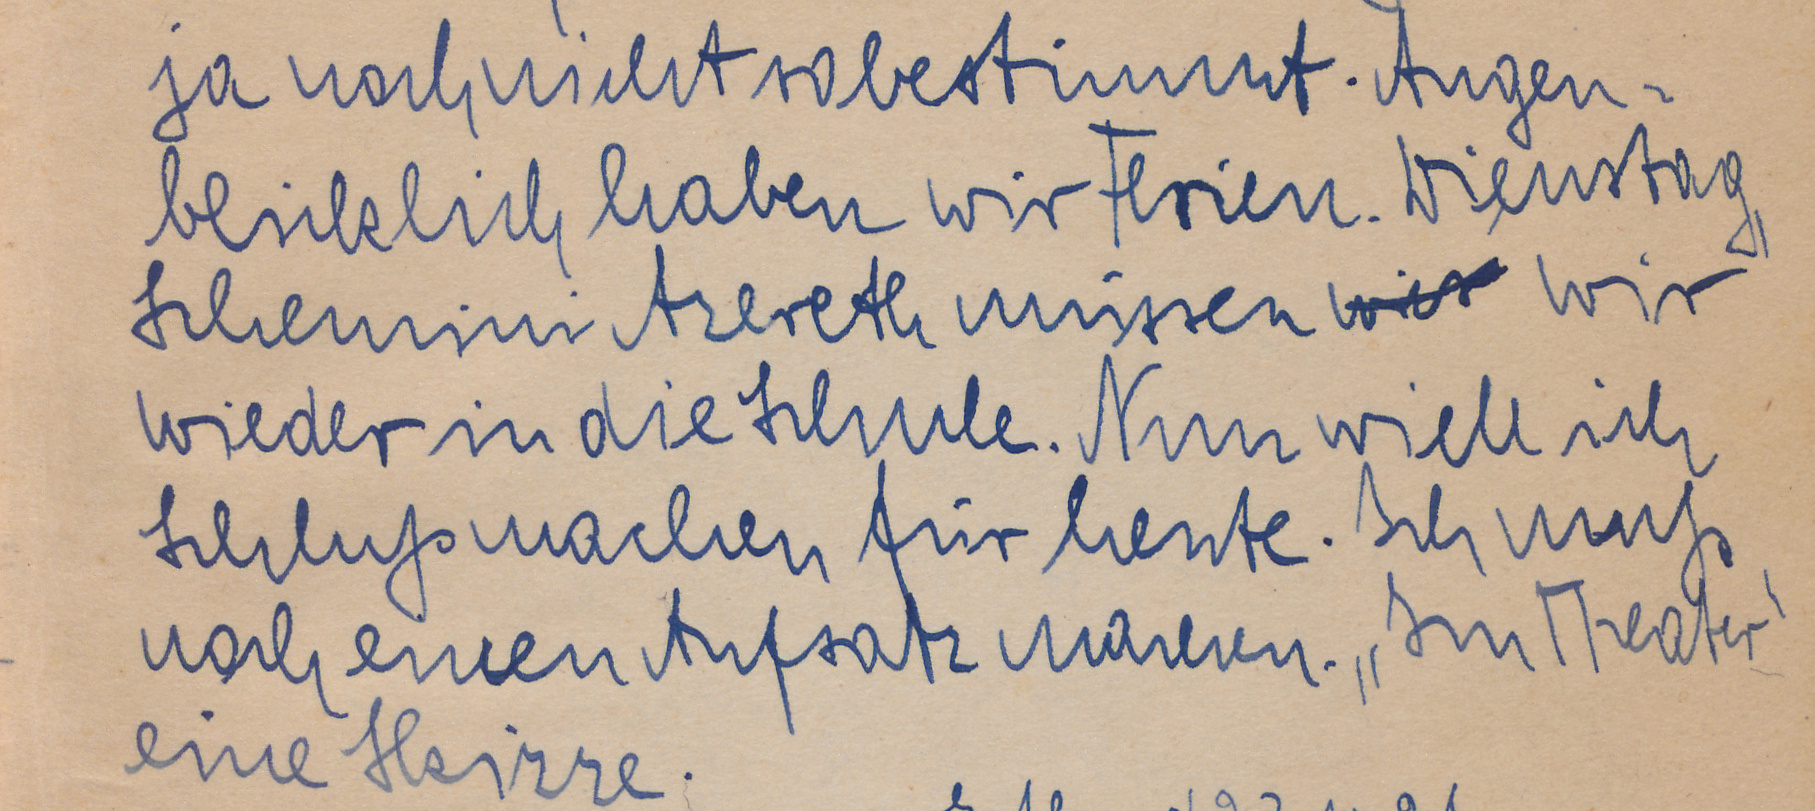 ja noch nicht so bestimmt. Augen-
blicklich haben wir Ferien. Dienstag,
Schemini Azereth müssen wir wir
wieder in die Schule. Nun will ich
Schluß machen für heute. Ich muß
noch einen Aufsatz machen. „Im Theater“
eine Skizze.